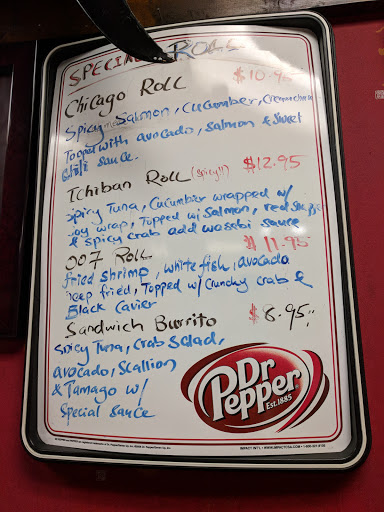 SPECIAL ROLL
Chicago Roll $10.95
Spicy Salmon, Cucumber,
Topped with avocado, salmon & Sweet
Chili sauce.
Ichiban Roll (spicy!!) $12.95
Spicy Tuna, Cucumber wrapped w/
Soy wrap, Topped w/ Salmon, red
& spicy crab add wasabi sauce
007 Roll $11.95
fried shrimp, white fish, avocado
Deep fried, Topped w/ Crunchy crab &
Black Cavier
Sandwich Burrito $8.95
Spicy Tuna, Crab Salad,
avocado, Scallion
& Tamago w/
Special sauce
Dr
Pepper
Est. 1885